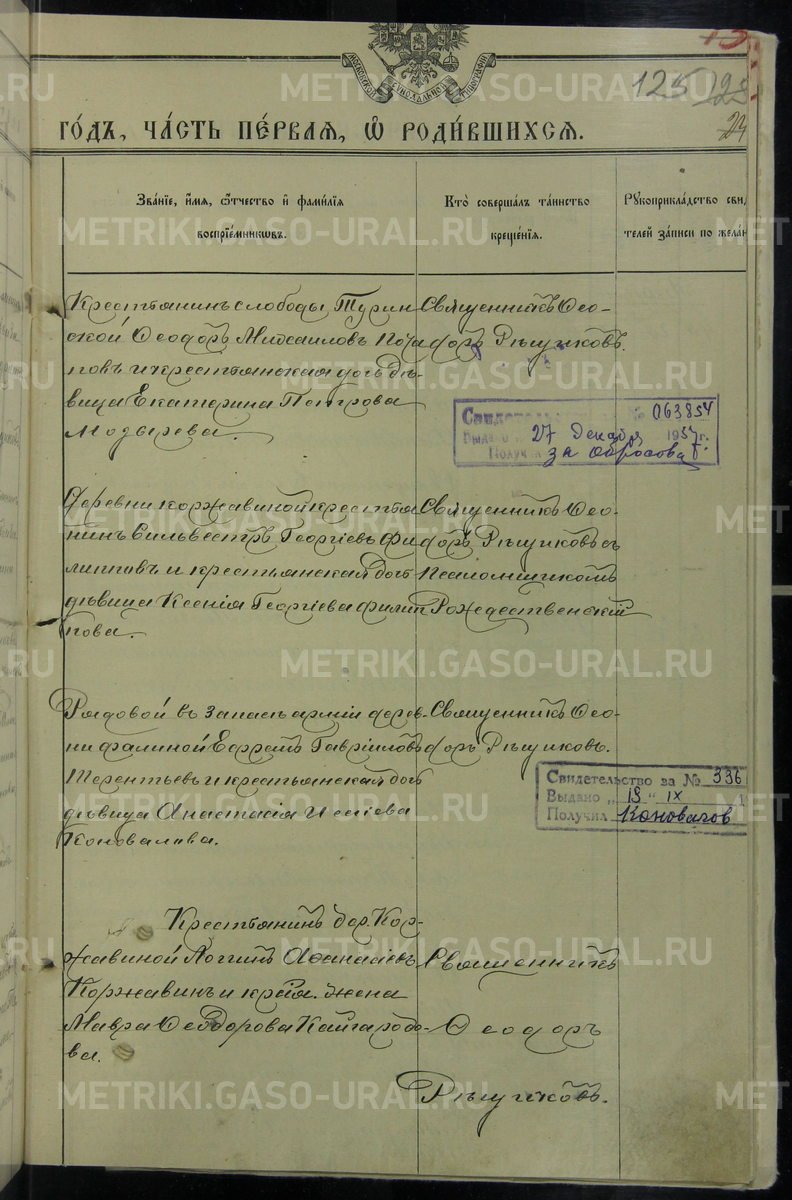 МОСКОВСКОЙ СѴНОДАЛЬНОЙ ТИПОГРАФІИ
125 125
24
ГОДЪ, ЧАСТЬ ПЕРВАЯ, Ѡ РОДИВШИХСЯ.
Званіе, имя, ѿчество и фамилія
воспріемниковъ.
Кто совершалъ таинство
крещенія.
Рукоприкладство свид
телей записи по желан
Крестьянинъ слободы Турин
ской Ѳеодоръ Михаиловъ Поча
повъ и крестьянская дочь дѣ-
вица Екатерина Петрова
Модырева.
Священникъ Ѳео-
доръ Рѣщиковъ.
Свидетельство № 063854
Выдано 27 декабря 1954 г.
Получил за Обросова
Деревни Коржавиной крестья
нинъ Сильвестръ Георгіевъ Фи
липповъ и крестьянская дочь
дѣвица Ксенія Георгіева Филип
пова.
Священникъ Ѳео-
доръ Рѣщиковъ съ
псаломщикомъ
Рождественский
Рядовой въ запасѣ арміи дерев-
ни Фалиной Евграфъ Гавріиловъ
Терентьевъ и крестьянская дочь
дѣвица Анастасія Иеліева
Коновалова.
Священникъ Ѳео-
доръ Рѣщиковъ.
Свидетельство за № 336
Выдано „ 13 “ IX
Получил Коновалов
Крестьянинъ дер. Кор-
жавиной Логгинъ Аѳанасіевъ
Коржавинъ и крест. жена
Мавра Ѳеодорова Кайгародо-
ва.
Священникъ
Ѳеодоръ
Рѣщиковъ.
METRIKI.GASO-URAL.RU